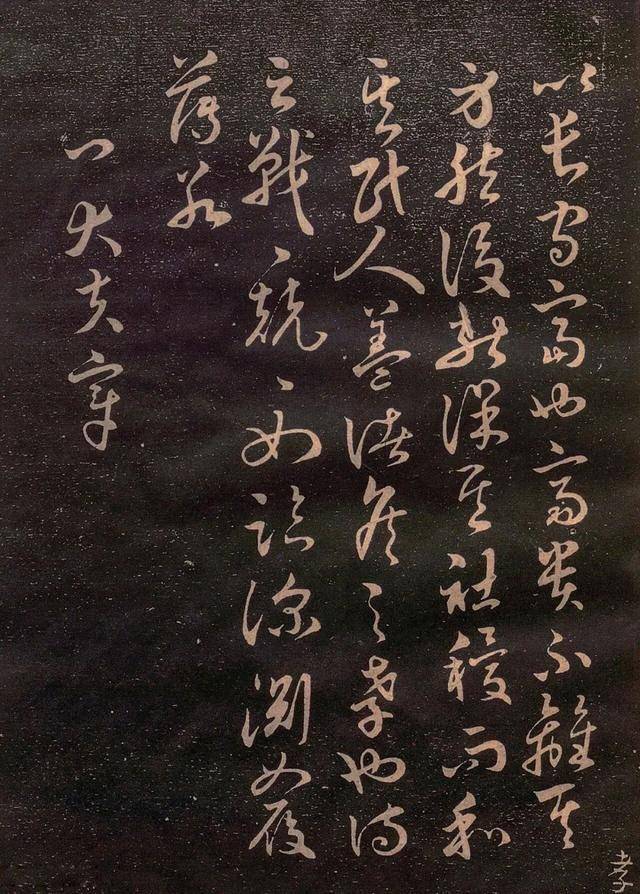 以長守富也富貴不離其
身然後能保其社稷而和
其民人蓋諸侯之孝也詩
云戰〻兢〻如臨深淵如履
薄冰
卿大夫章